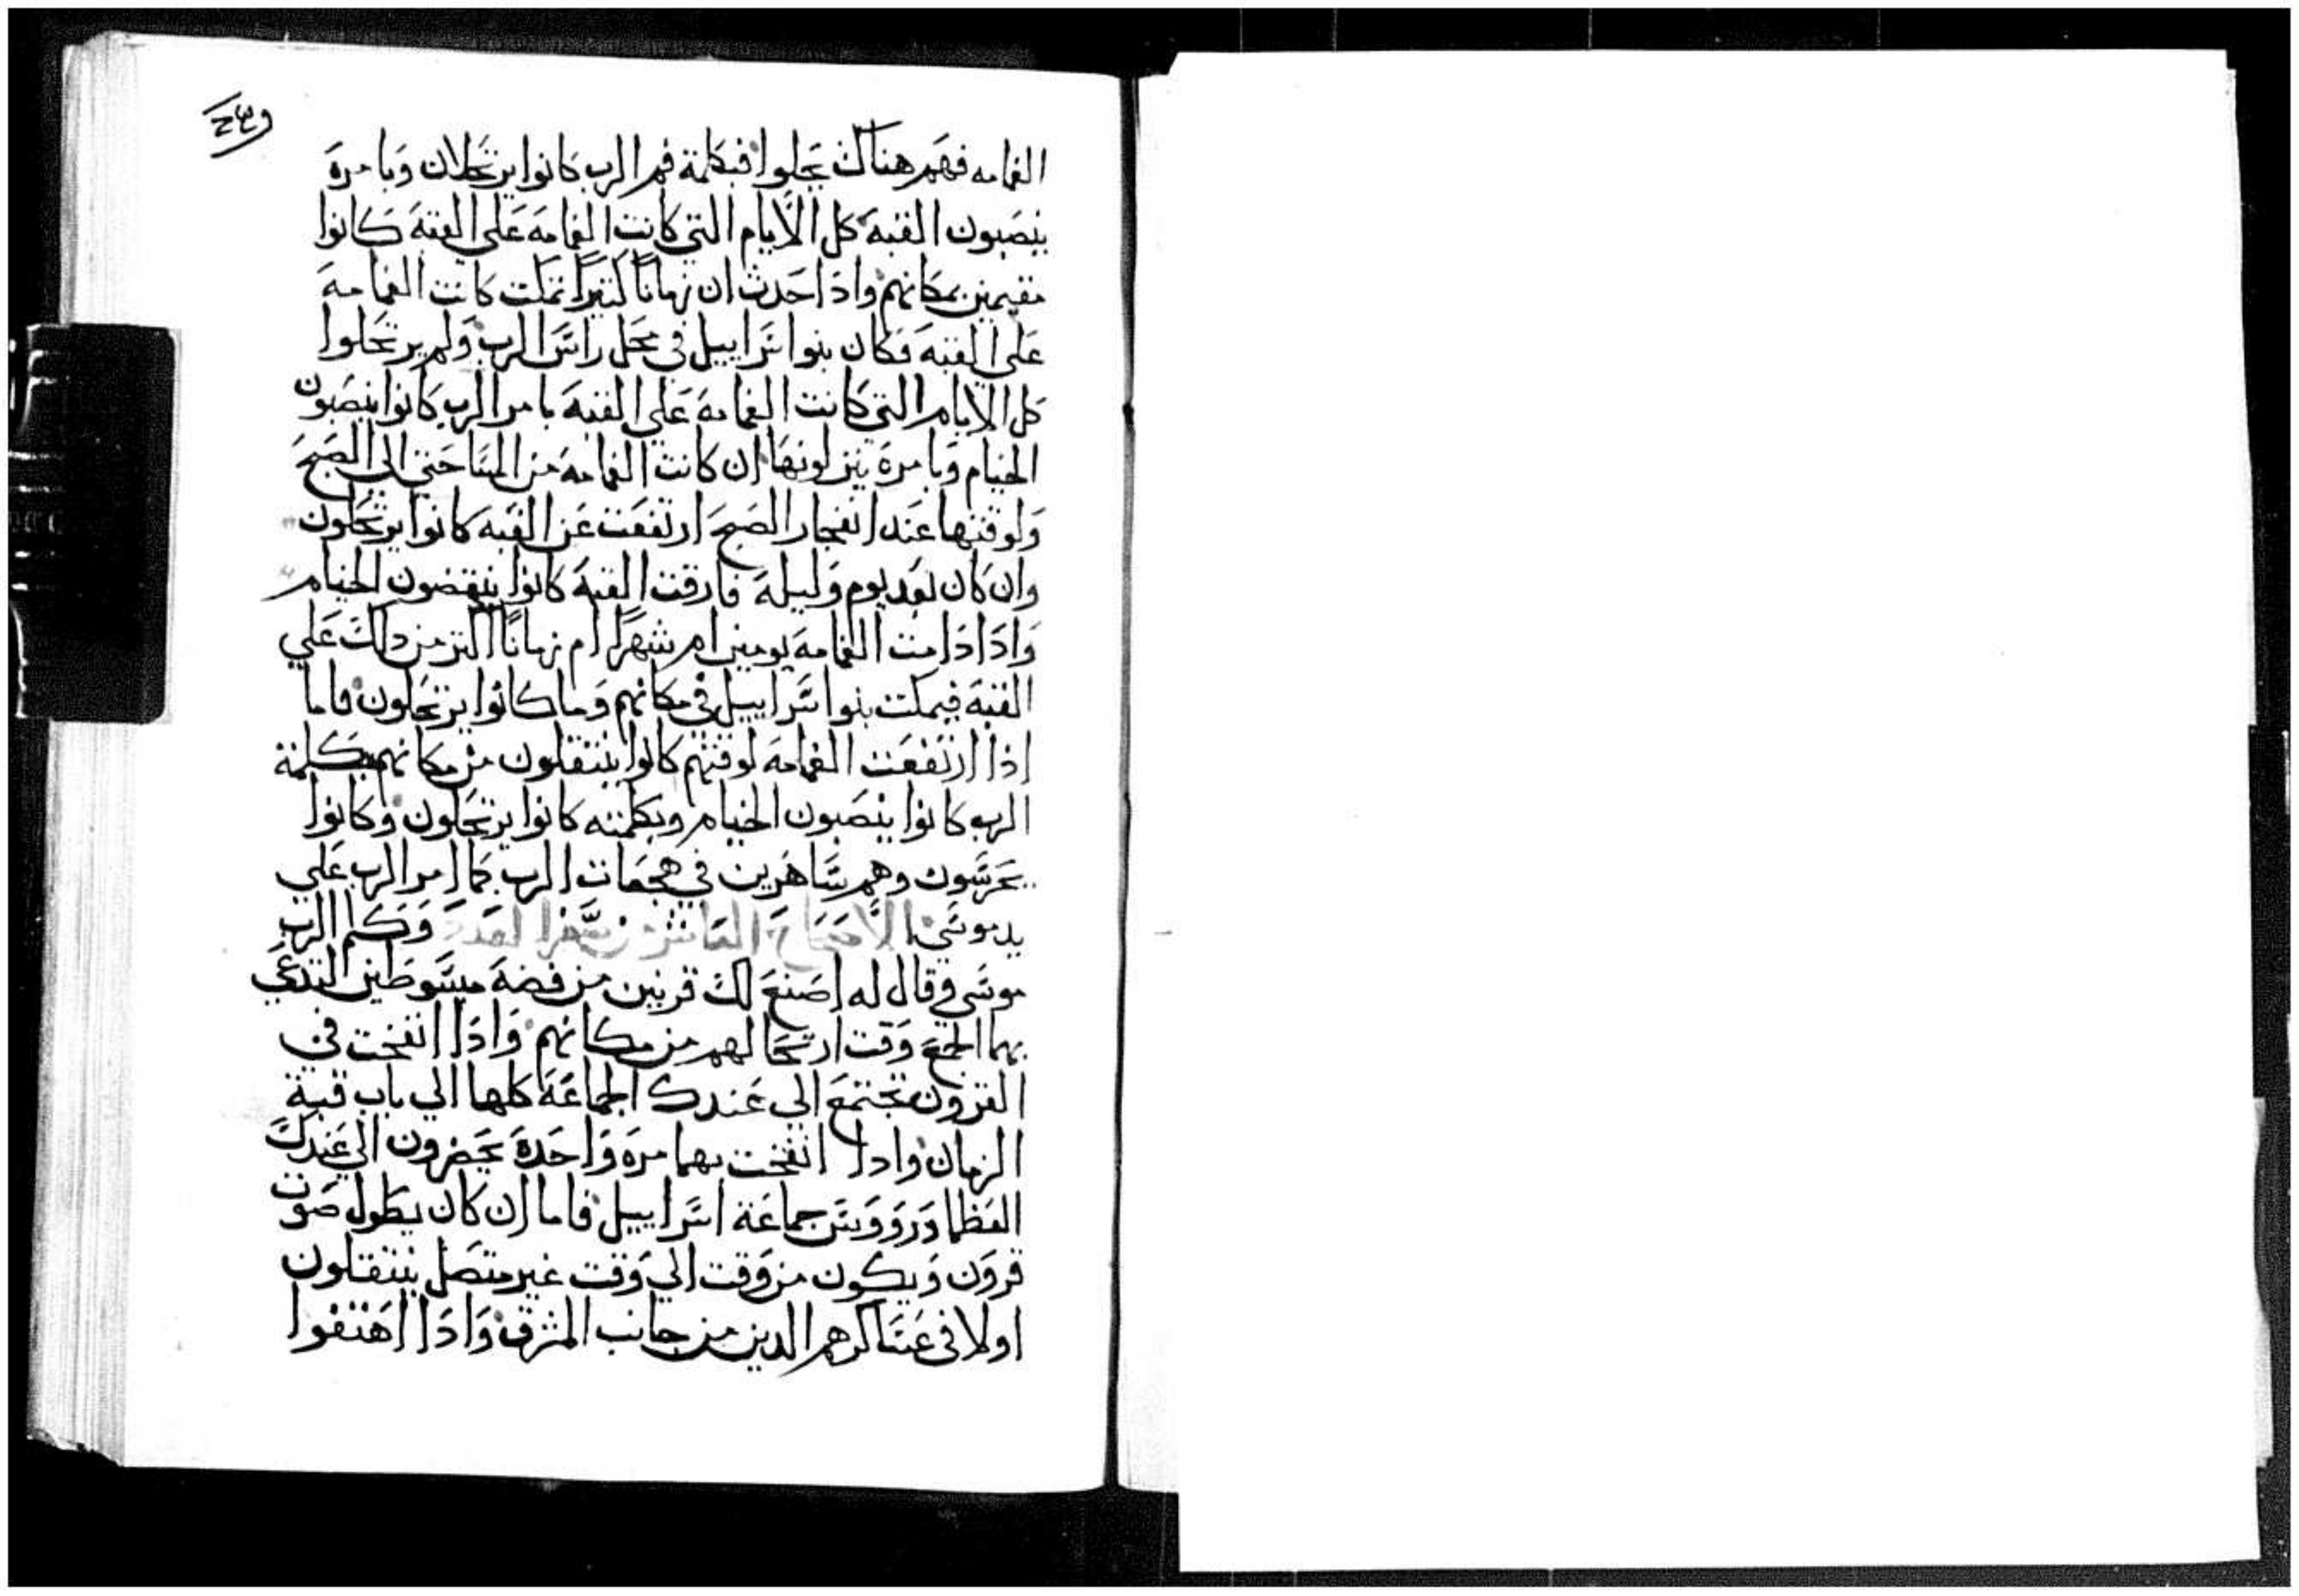 الغمامه فهم هناك يحلوا فبكلمة فم الرب كانوا يرتحلان وبامره
ينصبون القبه كل الايام التي كانت الغمامه على القبه كانوا
مقيمين بمكانهم واذا حدث ان زمانًا كتيرًا تمكت كانت الغمامه
على القبه فكان بنوا سراييل في محل راس الرب ولم يرتحلوا
كل الايام التي كانت الغمامه علي القبه بامر الرب كانوا ينصبون
الخيام وبامره ينزلونها ان كانت الغمامه من المسا حتي الي الصبح
ولوقتها عند انفجار الصبح ارتفعت عن القبه كانوا يرتحلون
وان كان بعد يوم وليله فارقت القبه كانوا ينقضون الخيام
وادا دامت الغمامه يومين ام شهرًا ام زمانًا اكتر من داك علي
القبه فيمكت بنوا سراييل في مكانهم وما كانوا يرتحلون فاما
اذا ارتفعت الغمامه لوقتهم كانوا ينتقلون من مكانهم بكلمة
الرب كانوا ينصبون الخيام وبكلمته كانوا يرتحلون وكانوا
يحرسون وهم ساهرين في هجعات الرب كما امر الرب علي
يد موسي الاصحاح العاشر من سفر العدد وكلم الرب
موسي وقال له اصنع لك قرنين من فضه مبسوطين لتدعي
بهما الجمع وقت ارتحالهم من مكانهم وادا انفخت في
القرون تجتمع الي عندك الجماعة كلها الي باب قبة
الزمان وادا انفخت بهما مره واحده يحضرون الي عندك
العظما وروووس جماعة اسراييل فاما ان كان يطول صوت
قرون ويكون من وقت الي وقت غير متصل ينتقلون
اولا في عساكرهم الدين من جانب المشرق وادا اهتفوا